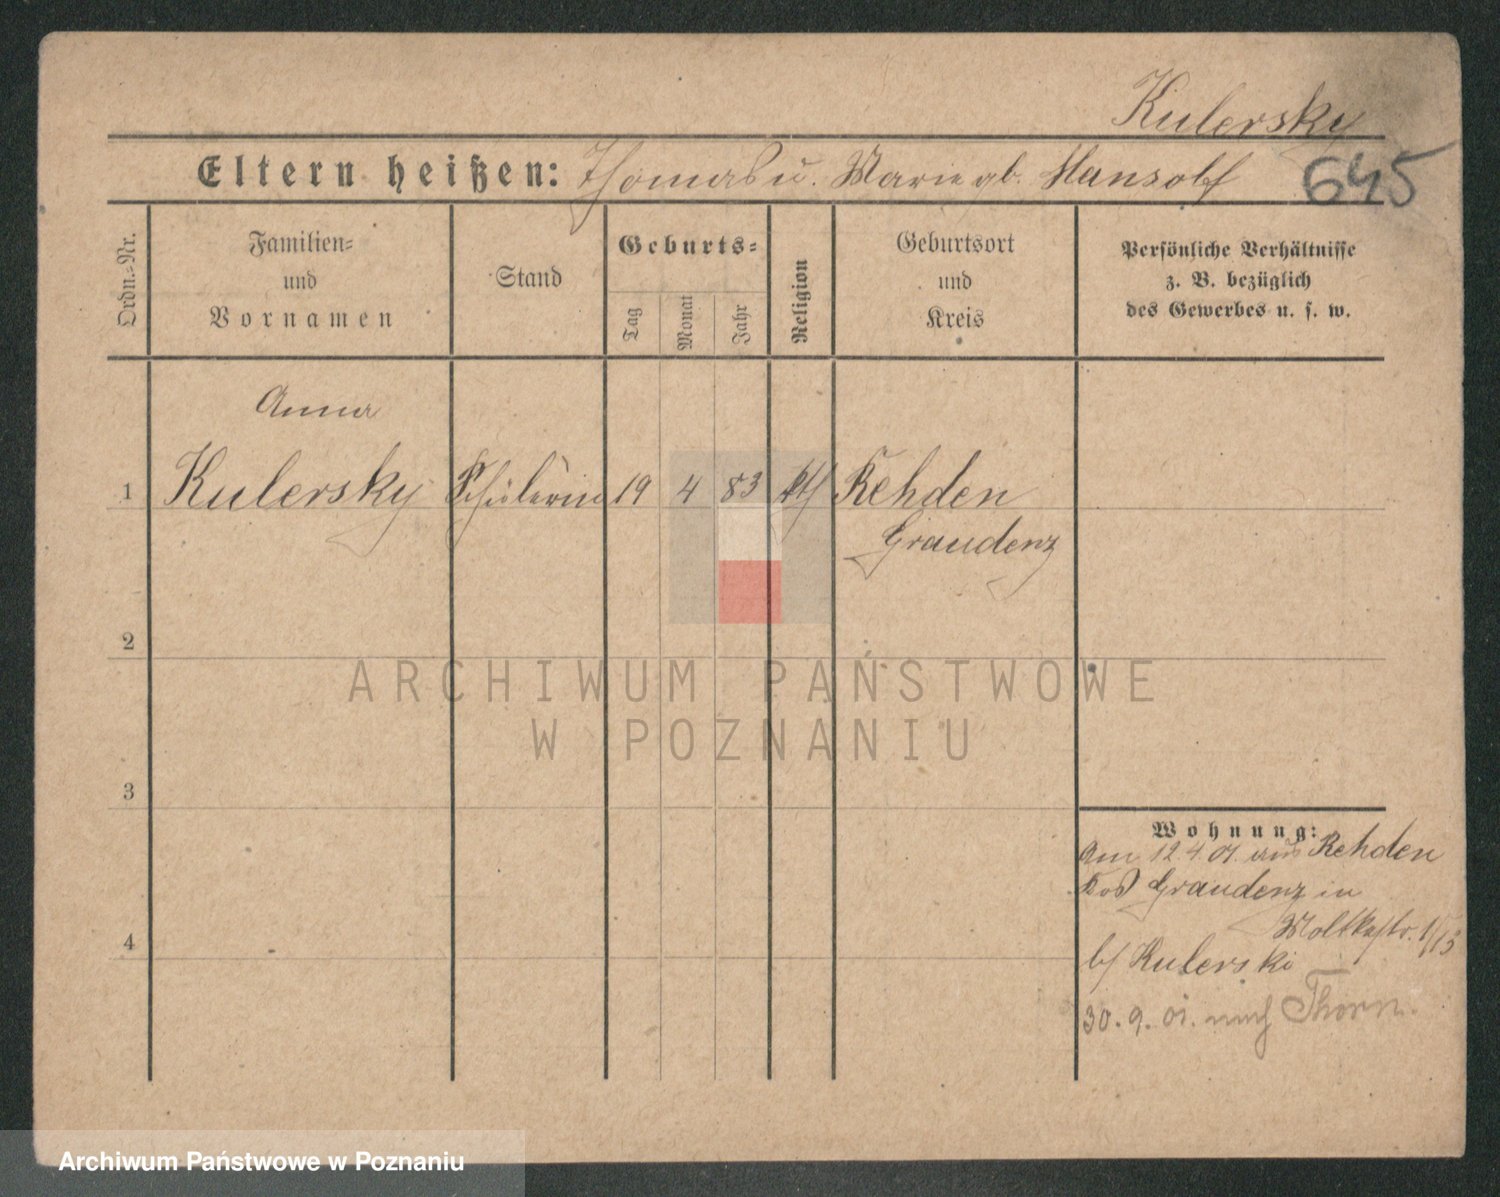 Kulersky
Eltern heißen: Thomas u. Marie gb. Hansolf
645
Ordn.-Nr.
Familien-
und
Vornamen
Stand
Geburts-
Tag
Monat
Jahr
Religion
Geburtsort
und
Kreis
Persönliche Verhältnisse
z. B. bezüglich
des Gewerbes u. s. w.
Anna
1 Kulersky Schülerin 19 4 83 kth Rehden
Graudenz
2
3
4
Wohnung:
Am 12.4.01. aus Rehden
Graudenz in
Moltkestr. 1/13
b/ Kulerski
30.9.01. nach Thorn.
ARCHIWUM PAŃSTWOWE
W POZNANIU
Archiwum Państwowe w Poznaniu